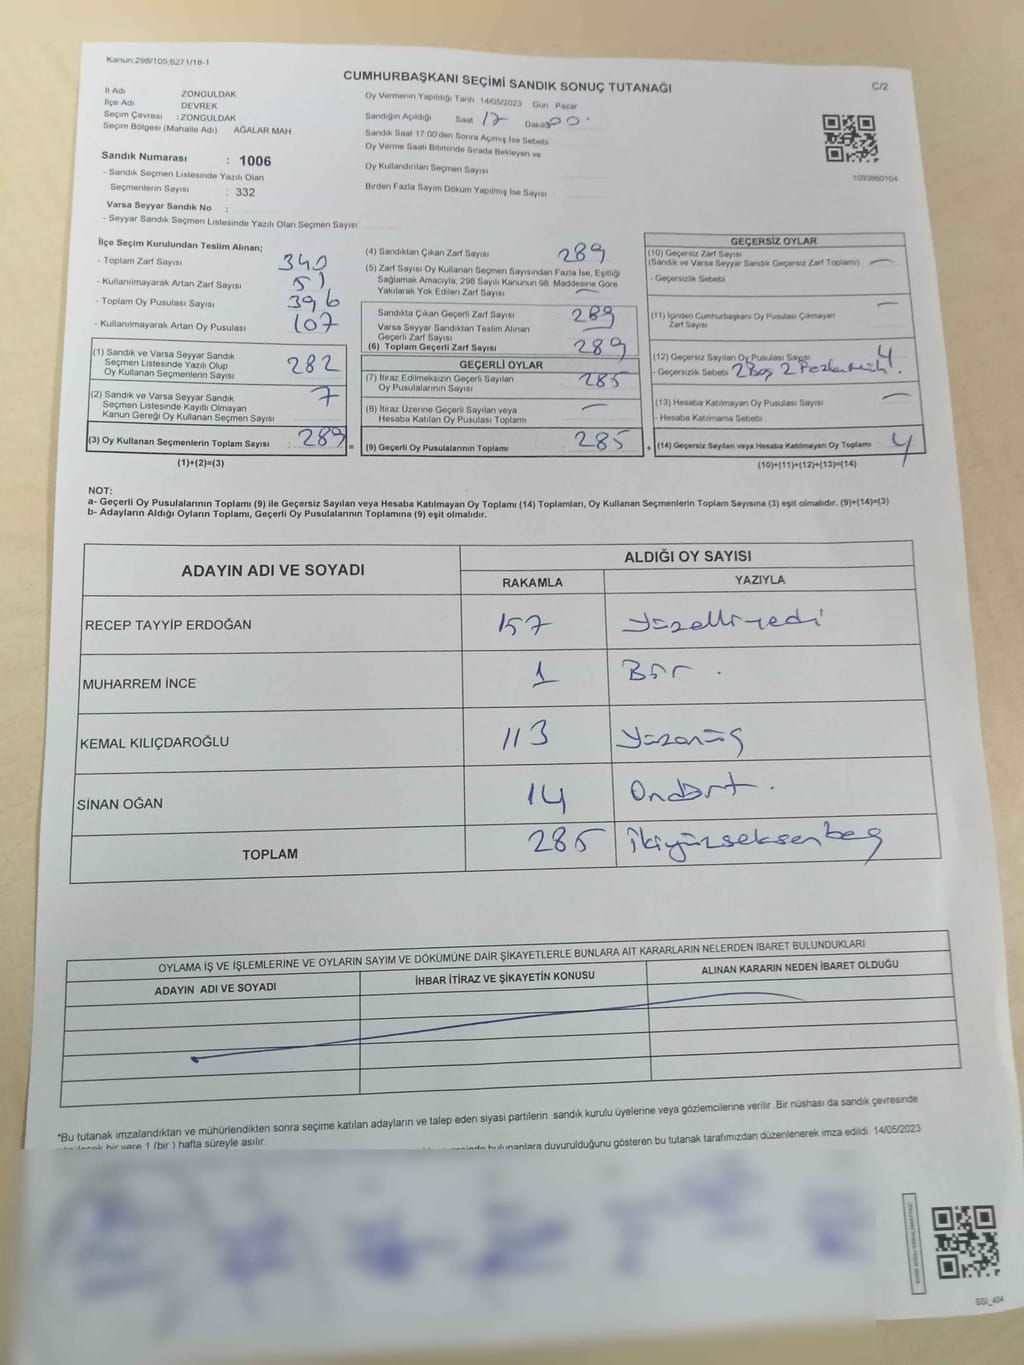 Kanun,298/105,6271/18-1
CUMHURBAŞKANI SEÇİMİ SANDIK SONUÇ TUTANAĞI
C/2
İl Adı ZONGULDAK
İlçe Adı DEVREK
Seçim Çevresi : ZONGULDAK
Seçim Bölgesi (Mahalle Adı) AĞALAR MAH
Sandık Numarası : 1006
- Sandık Seçmen Listesinde Yazılı Olan
Seçmenlerin Sayısı : 332
Varsa Seyyar Sandık No :
- Seyyar Sandık Seçmen Listesinde Yazılı Olan Seçmen Sayısı
Oy Vermenin Yapıldığı Tarih 14/05/2023 Gün Pazar
Sandığın Açıldığı Saat 17 Dakika 00
Sandık Saat 17.00'den Sonra Açılmış İse Sebebi
Oy Verme Saati Bitiminde Sırada Bekleyen ve
Oy Kullandırılan Seçmen Sayısı
Birden Fazla Sayım Döküm Yapılmış İse Sayısı
1093860104
İlçe Seçim Kurulundan Teslim Alınan;
- Toplam Zarf Sayısı 340
- Kullanılmayarak Artan Zarf Sayısı 51
- Toplam Oy Pusulası Sayısı 396
- Kullanılmayarak Artan Oy Pusulası 107
(1) Sandık ve Varsa Seyyar Sandık
Seçmen Listesinde Yazılı Olup
Oy Kullanan Seçmenlerin Sayısı 282
(2) Sandık ve Varsa Seyyar Sandık
Seçmen Listesinde Kayıtlı Olmayan
Kanun Gereği Oy Kullanan Seçmen Sayısı 7
(3) Oy Kullanan Seçmenlerin Toplam Sayısı 289 =
(1)+(2)=(3)
(4) Sandıktan Çıkan Zarf Sayısı 289
(5) Zarf Sayısı Oy Kullanan Seçmen Sayısından Fazla İse, Eşitliği
Sağlamak Amacıyla, 298 Sayılı Kanunun 98. Maddesine Göre
Yakılarak Yok Edilen Zarf Sayısı —
Sandıkta Çıkan Geçerli Zarf Sayısı 289
Varsa Seyyar Sandıktan Teslim Alınan
Geçerli Zarf Sayısı —
(6) Toplam Geçerli Zarf Sayısı 289
GEÇERLİ OYLAR
(7) İtiraz Edilmeksizin Geçerli Sayılan
Oy Pusulalarının Sayısı 285
(8) İtiraz Üzerine Geçerli Sayılan veya
Hesaba Katılan Oy Pusulası Toplamı —
(9) Geçerli Oy Pusulalarının Toplamı 285 +
GEÇERSİZ OYLAR
(10) Geçersiz Zarf Sayısı
(Sandık ve Varsa Seyyar Sandık Geçersiz Zarf Toplamı) —
- Geçersizlik Sebebi
(11) İçinden Cumhurbaşkanı Oy Pusulası Çıkmayan
Zarf Sayısı —
(12) Geçersiz Sayılan Oy Pusulası Sayısı 4
- Geçersizlik Sebebi 2 Boş 2
(13) Hesaba Katılmayan Oy Pusulası Sayısı —
- Hesaba Katılmama Sebebi
(14) Geçersiz Sayılan veya Hesaba Katılmayan Oy Toplamı : 4
(10)+(11)+(12)+(13)=(14)
NOT:
a- Geçerli Oy Pusulalarının Toplamı (9) ile Geçersiz Sayılan veya Hesaba Katılmayan Oy Toplamı (14) Toplamları, Oy Kullanan Seçmenlerin Toplam Sayısına (3) eşit olmalıdır. (9)+(14)=(3)
b- Adayların Aldığı Oyların Toplamı, Geçerli Oy Pusulalarının Toplamına (9) eşit olmalıdır.
ADAYIN ADI VE SOYADI
ALDIĞI OY SAYISI
RAKAMLA YAZIYLA
RECEP TAYYİP ERDOĞAN 157 Yüzelliyedi
MUHARREM İNCE 1 Bir .
KEMAL KILIÇDAROĞLU 113 Yüzonüç
SİNAN OĞAN 14 Ondört .
TOPLAM 285 İkiyüzseksenbeş
OYLAMA İŞ VE İŞLEMLERİNE VE OYLARIN SAYIM VE DÖKÜMÜNE DAİR ŞİKAYETLERLE BUNLARA AİT KARARLARIN NELERDEN İBARET BULUNDUKLARI
ADAYIN ADI VE SOYADI İHBAR İTİRAZ VE ŞİKAYETİN KONUSU ALINAN KARARIN NEDEN İBARET OLDUĞU
*Bu tutanak imzalandıktan ve mühürlendikten sonra seçime katılan adayların ve talep eden siyasi partilerin sandık kurulu üyelerine veya gözlemcilerine verilir. Bir nüshası da sandık çevresinde
bir yere 1 (bir) hafta süreyle asılır.
bulunanlara duyurulduğunu gösteren bu tutanak tarafımızdan düzenlenerek imza edildi. 14/05/2023
SSI_404